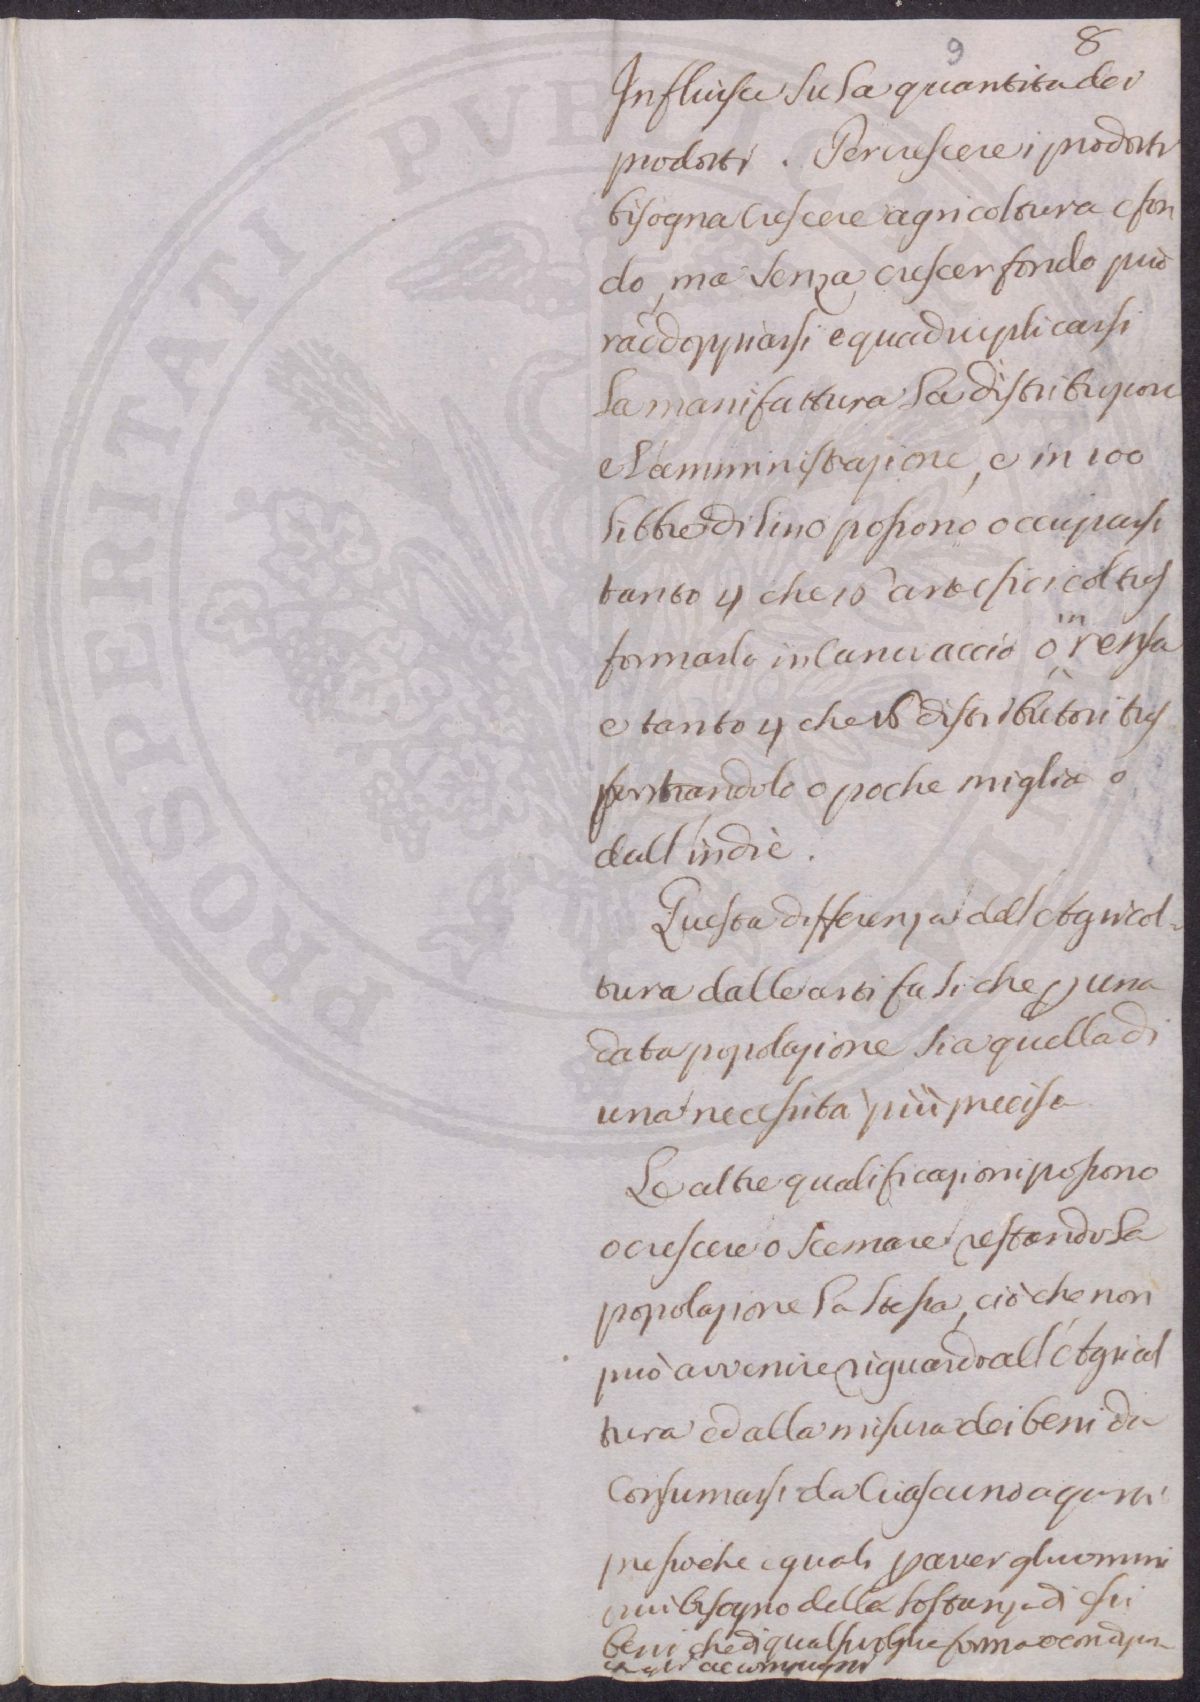 9 8
Influisce su la quantità dei
prodotti. Per crescere i prodotti
bisogna crescere agricoltura e fon
do, ma senza crescer fondo può
raddoppiarsi e quadruplicarsi
la manifattura la distribuzione
e l'amministrazione, e in 100
libbre di lino possono occuparsi
tanto 4 che 10 artefici col tras
formarlo in canevaccio o in rensa
e tanto 4 che 16 distributori tras
portandolo o poche miglia o
dall'indie.
Questa differenza dell'Agricol-
tura dalle arti fa sì che p una
data popolazione sia quella di
una necessità più precisa
Le altre qualificazioni possono
o crescere o scemare restando la
popolazione la stessa, ciò che non
può avvenire riguardo all'Agricol
tura ed alla misura dei beni da
consumarsi da ciascuno a questi
pressoche eguali p aver gl'uomini
più bisogno della sostanza di essi
beni che di qualsivoglia forma o condizion
accompagni
PROSPERITATI PVBLICAE